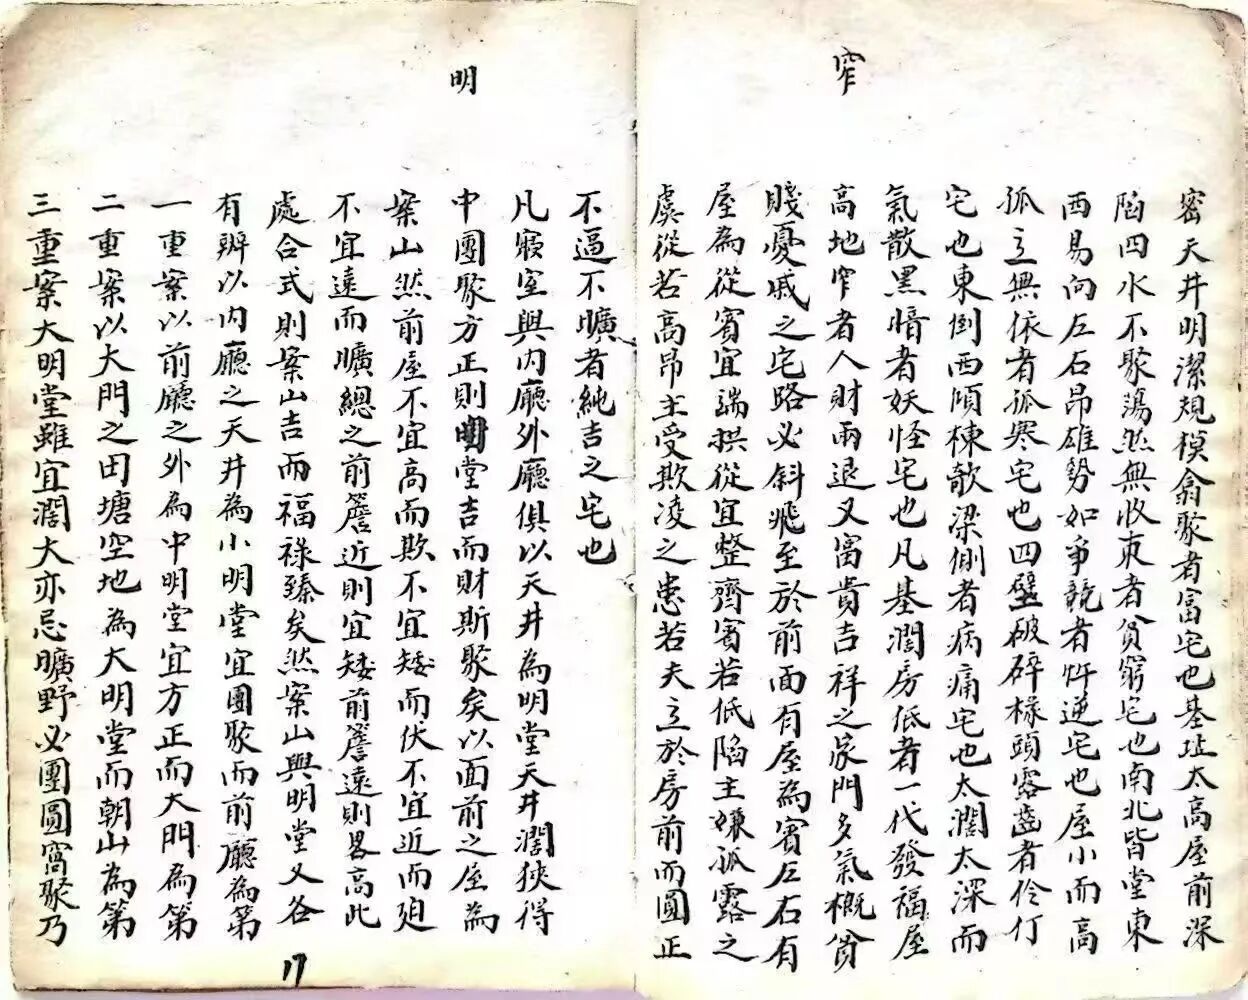 窄
密天井明潔規模翕聚者富宅也基址太高屋前深
陷四水不聚蕩然無收束者貧窮宅也南北皆堂東
西易向左右昂雄勢如爭競者忤逆宅也屋小而高
孤立無依者孤寒宅也四壁破碎椽頭露齒者伶仃
宅也東倒西傾棟欹梁側者病痛宅也太濶太深而
氣散黑暗者妖怪宅也凡基濶房低者一代發福屋
高地窄者人財兩退又富貴吉祥之家門多氣概貧
賤憂戚之宅路必斜飛至於前面有屋為賓左右有
屋為從賓宜端拱從宜整齊賓若低陷主嫌孤露之
虞從若高昂主受欺凌之患若夫立於房前而圓正
明
不逼不曠者純吉之宅也
凡寢室與內廳外廳俱以天井為明堂天井濶狹得
中團聚方正則明堂吉而財斯聚矣以面前之屋為
案山然前屋不宜高而欺不宜矮而伏不宜近而廹
不宜遠而曠總之前簷近則宜矮前簷遠則畧高此
處合式則案山吉而福祿臻矣然案山與明堂又各
有辦以內廳之天井為小明堂宜團聚而前廳為第
一重案以前廳之外為中明堂宜方正而大門為第
二重案以大門之田塘空地為大明堂而朝山為第
三重案大明堂雖宜濶大亦忌曠野必團圓窩聚乃
17